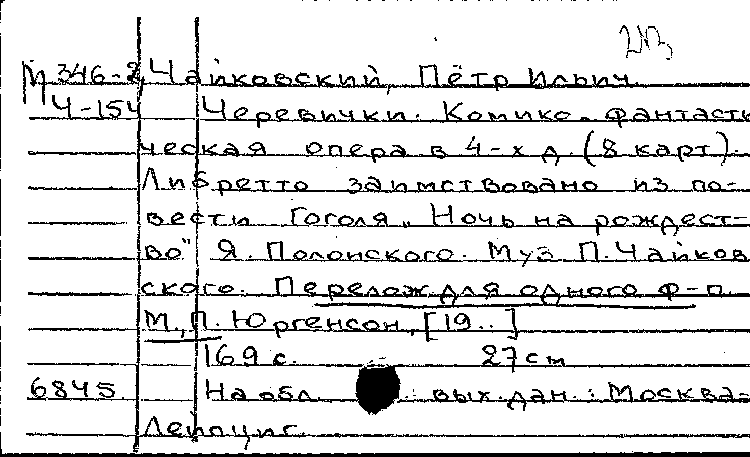 М 346-2 Чайковский, Пётр Ильич.
Ч-154 Черевички. Комико-фантасти
ческая опера в 4-х д. (8 карт).
Либретто заимствовано из по-
вести Гоголя „Ночь на рождест-
во" Я. Полонского. Муз П. Чайков
ского. Перелож. для одного ф-п.
М., П. Юргенсон, [19..]
169 с. 27 см
6845 На обл. вых. дан.: Москва-
Лейпциг.